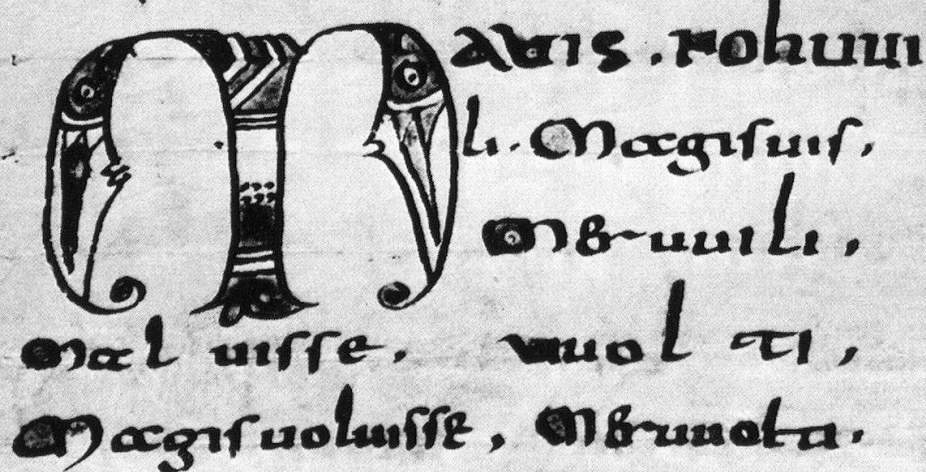 Mauis . rohuui
li . Magis uis .
Mer uuili ,
Mal uisse . uuol ti ,
Magis uoluisse , Mer uuolta .